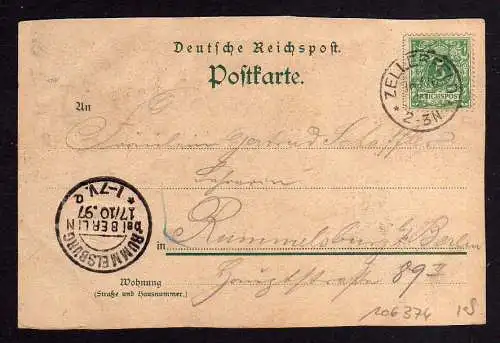 Deutsche Reichspost.
Postkarte.
5
REICHSPOST
ZELLERFELD
2-3N
An
Fräulein Gertrud
Lehrerin
in Rummelsburg b/ Berlin
Hauptstraße 89 II
Wohnung
(Straße und Hausnummer.)
RUMMELSBURG
bei BERLIN
17/10.97
*1-7V.a
106374 IS